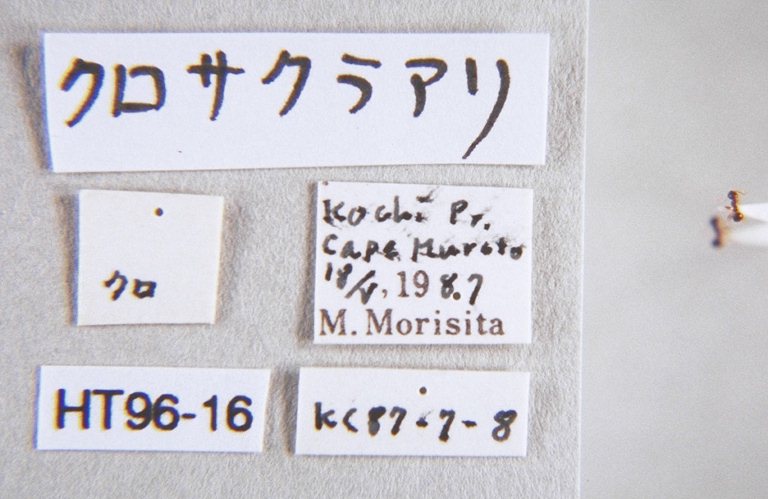 クロサクラアリ
クロ
Kochi Pr.
Cape Muroto
18/V, 1987
M. Morisita
HT96-16
KC87-7-8